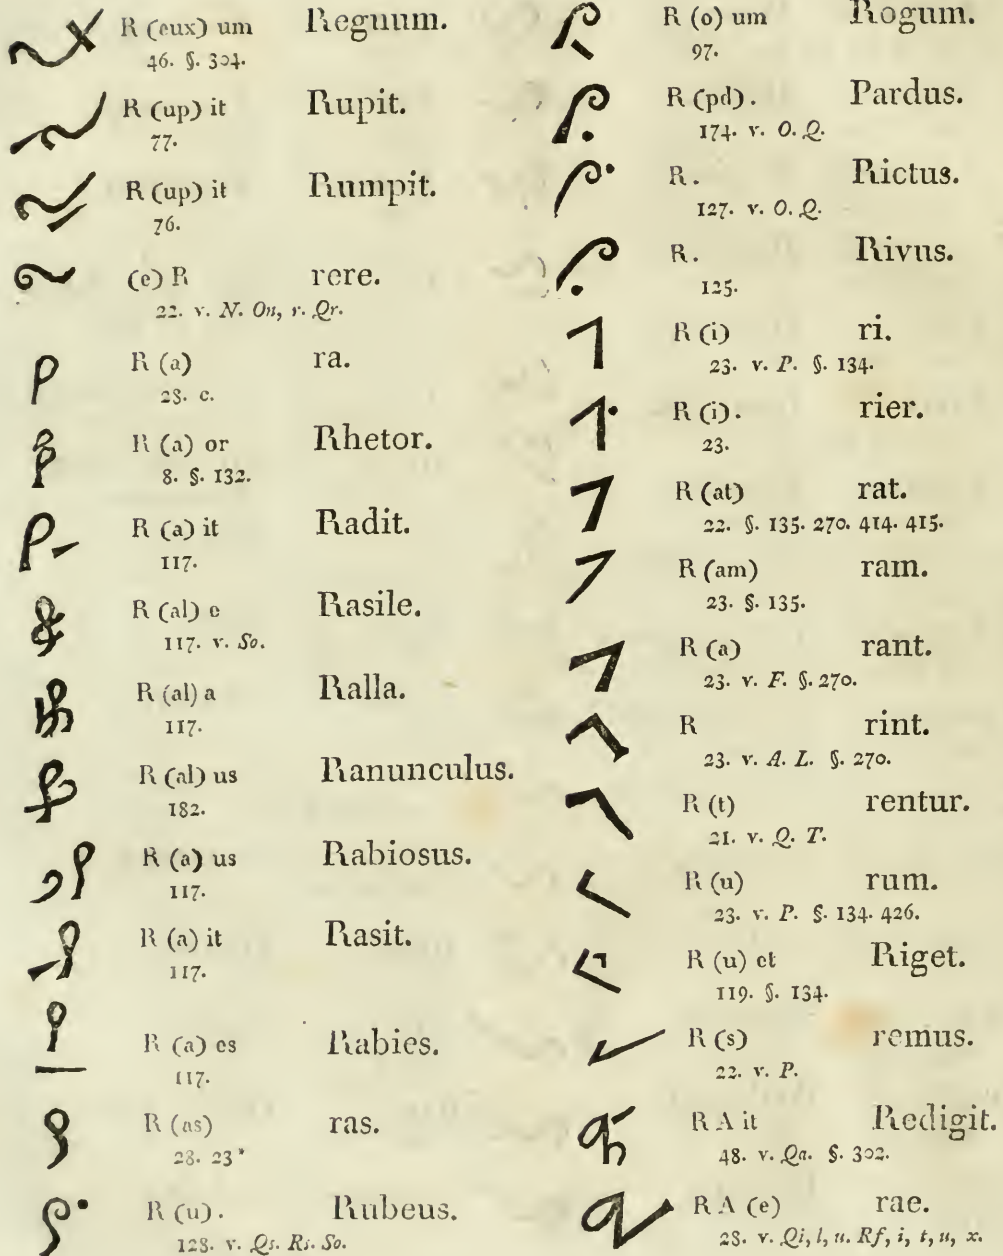 R (eux) um Regnum.
46. §. 304.
R (up) it Rupit.
77.
R (up) it Rumpit.
76.
(e) R rere.
22. v. N. On, r. Qr.
R (a) ra.
28. c.
R (a) or Rhetor.
8. §. 132.
R (a) it Radit.
117.
R (al) e Rasile.
117. v. So.
R (al) a Ralla.
117.
R (al) us Ranunculus.
182.
R (a) us Rabiosus.
117.
R (a) it Rasit.
117.
R (a) es Rabies.
117.
R (as) ras.
28. 23*
R (u) . Rubeus.
128. v. Qs. Rs. So.
R (o) um Rogum.
97.
R (pd) . Pardus.
174. v. O. Q.
R . Rictus.
127. v. O. Q.
R . Rivus.
125.
R (i) ri.
23. v. P. §. 134.
R (i) . rier.
23.
R (at) rat.
22. §. 135. 270. 414. 415.
R (am) ram.
23. §. 135.
R (a) rant.
23. v. F. §. 270.
R rint.
23. v. A. L. §. 270.
R (t) rentur.
21. v. Q. T.
R (u) rum.
23. v. P. §. 134. 426.
R (u) et Riget.
119. §. 134.
R (s) remus.
22. v. P.
R A it Redigit.
48. v. Qa. §. 302.
R A (e) rae.
28. v. Qi, l, u. Rf, i, t, u, x.